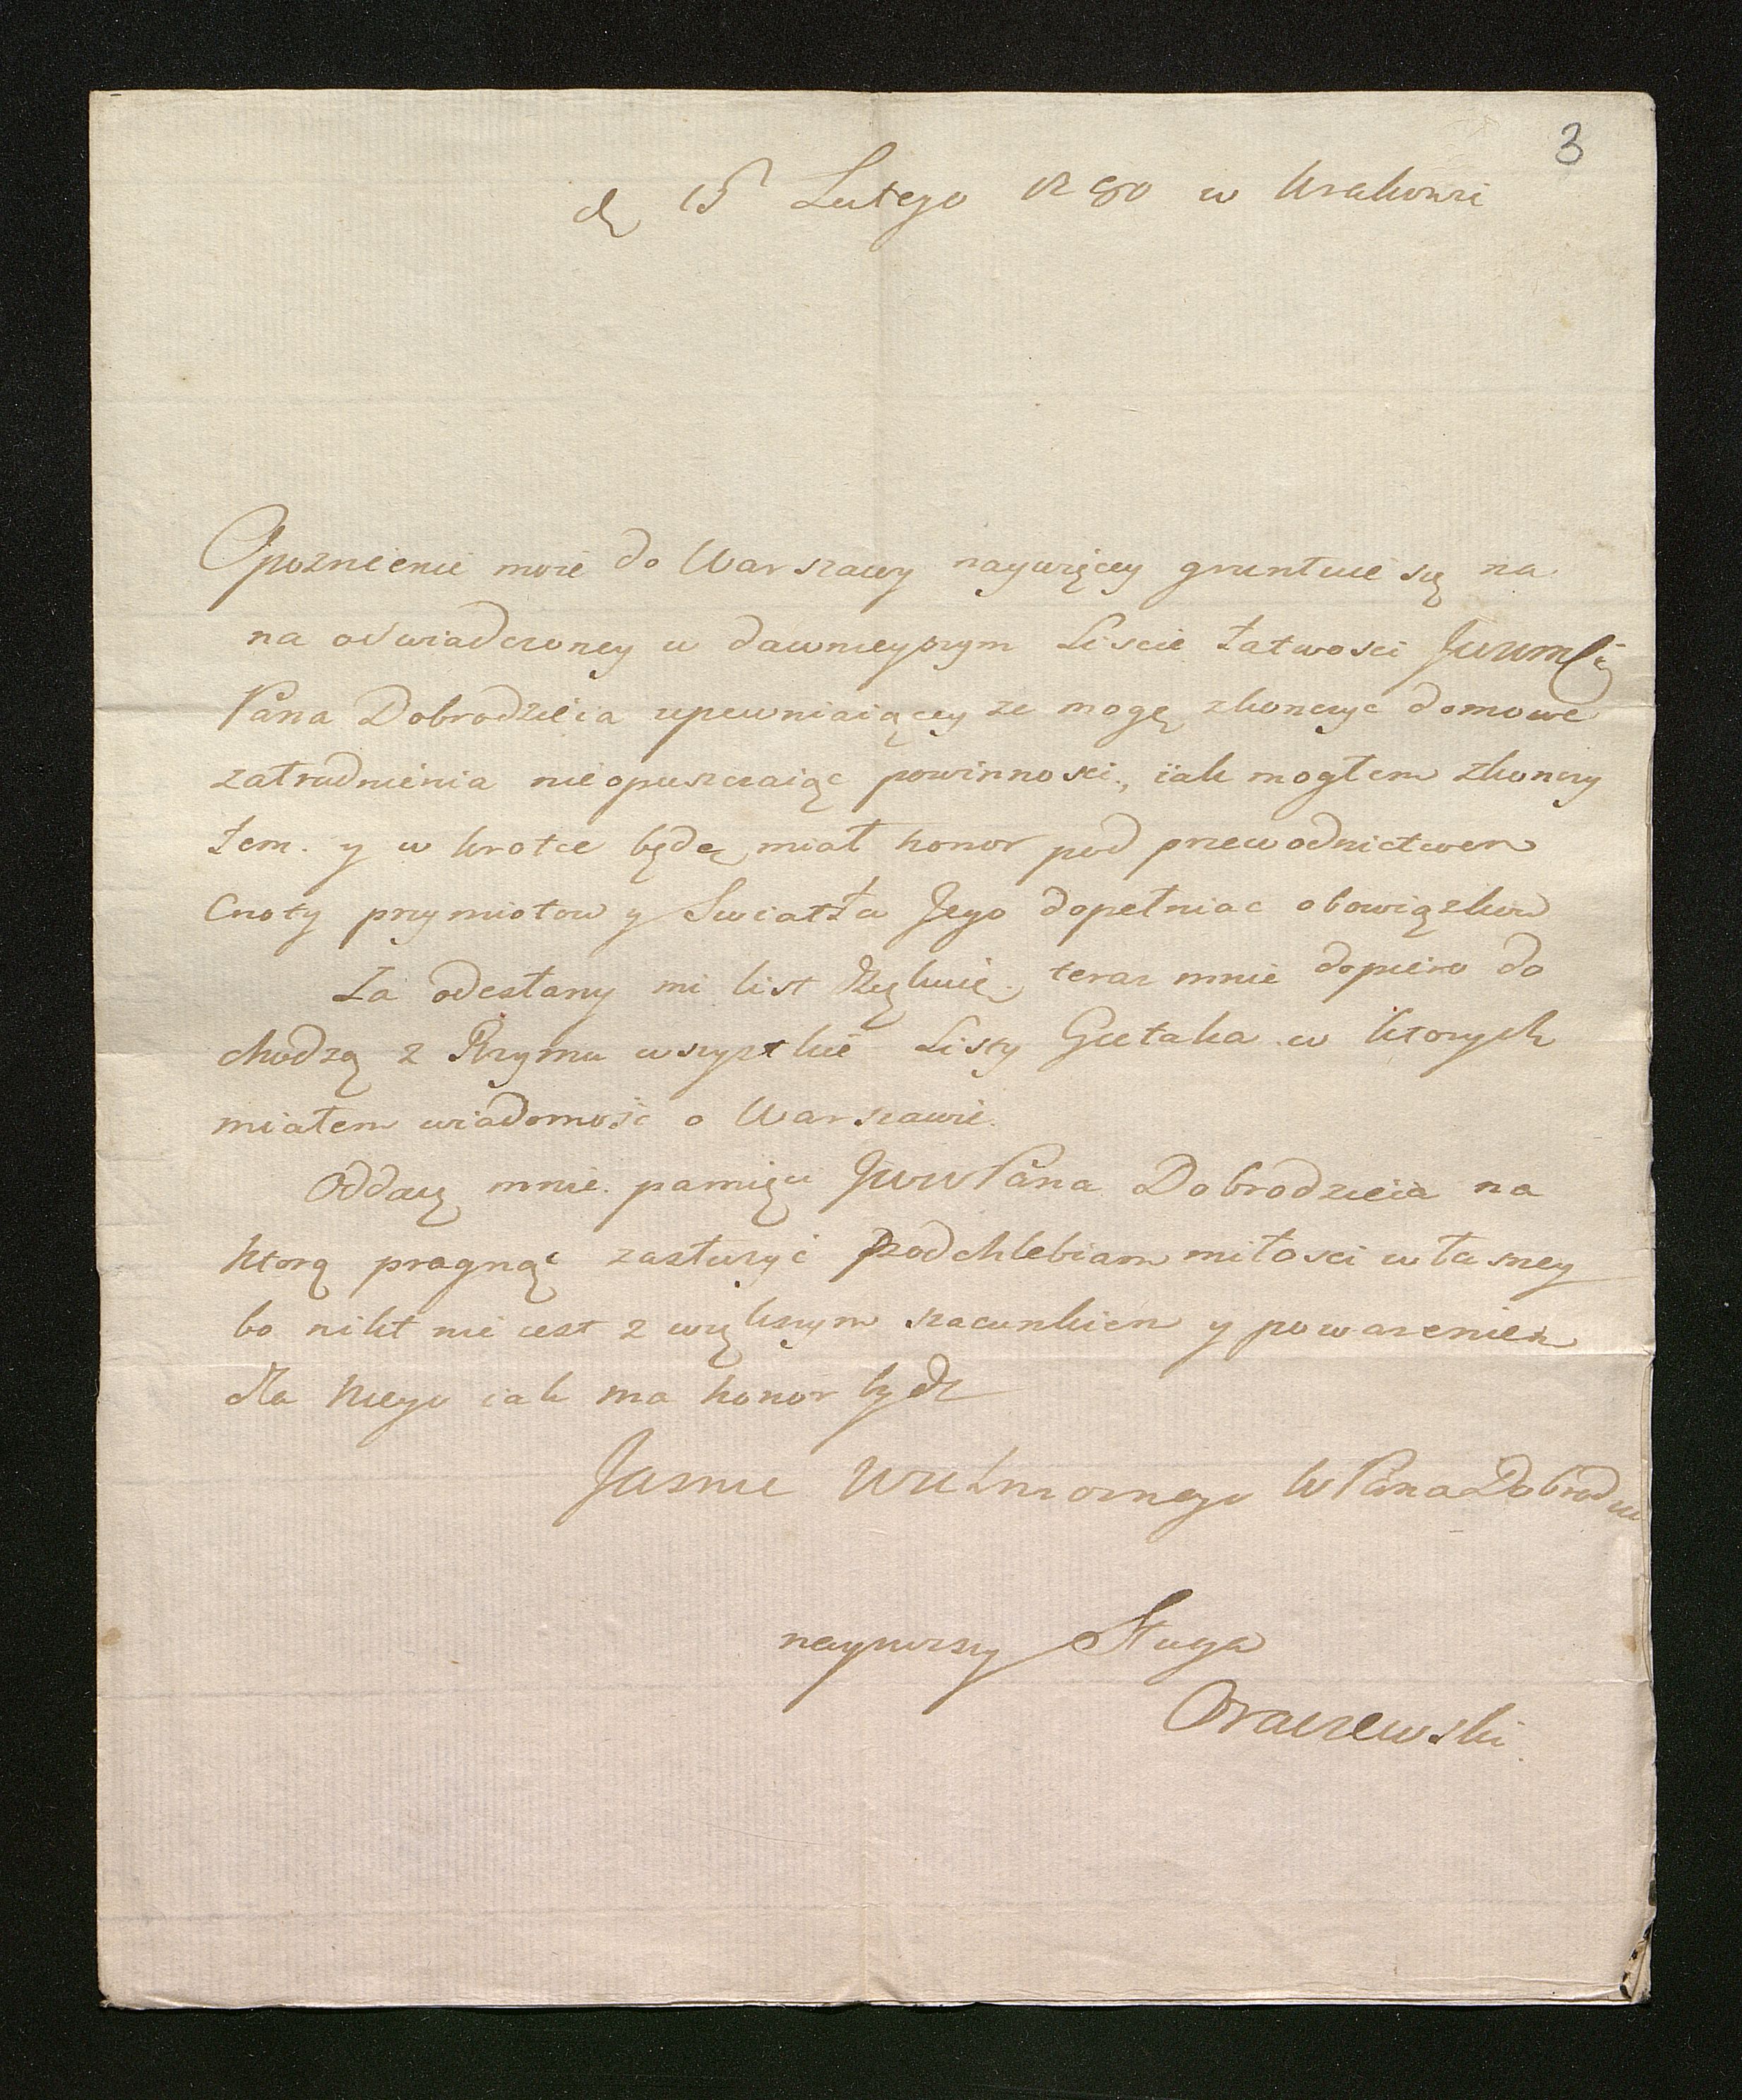 3
d 15 Lutego 1780 w Krakowie
Opoznienie moie do Warszawy naywięcey gruntuie się na
na oświadczoney w dawnieyszym Liscie łatwosci
Pana Dobrodzieia upewniaiącey ze mogę skonczyc domowe
zatrudnienia nieopuszczaiąc powinnosci, iak mogłem skonczy
łem. y w krotce będę miał honor pod przewodnictwem
Cnoty przymiotow y Swiatła Jego dopełniac obowiązkow
Za odesłany mi list dziękuię. teraz mnie dopiero do
chodzą z Rzymu wszystkie Listy w ktorych
miałem wiadomość o Warszawie.
Oddaię mnie pamięci JWWPana Dobrodzieia na
ktorą pragnąc zasłużyć podchlebiam miłosci własney
bo nikt nie iest z większym szacunkiem y poważeniem
dla Niego iak ma honor bydz
Jasnie Wielmoznego WPana Dobrodzieia
nayniższy Sługa
Oraczewski